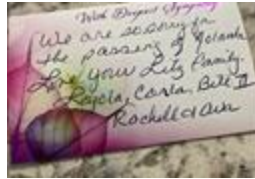 With Deepest Sympathy
We are so sorry for
the passing of Yolanda
Love your Litz Family.
Layla, Carla, Bill II
Rochelle &